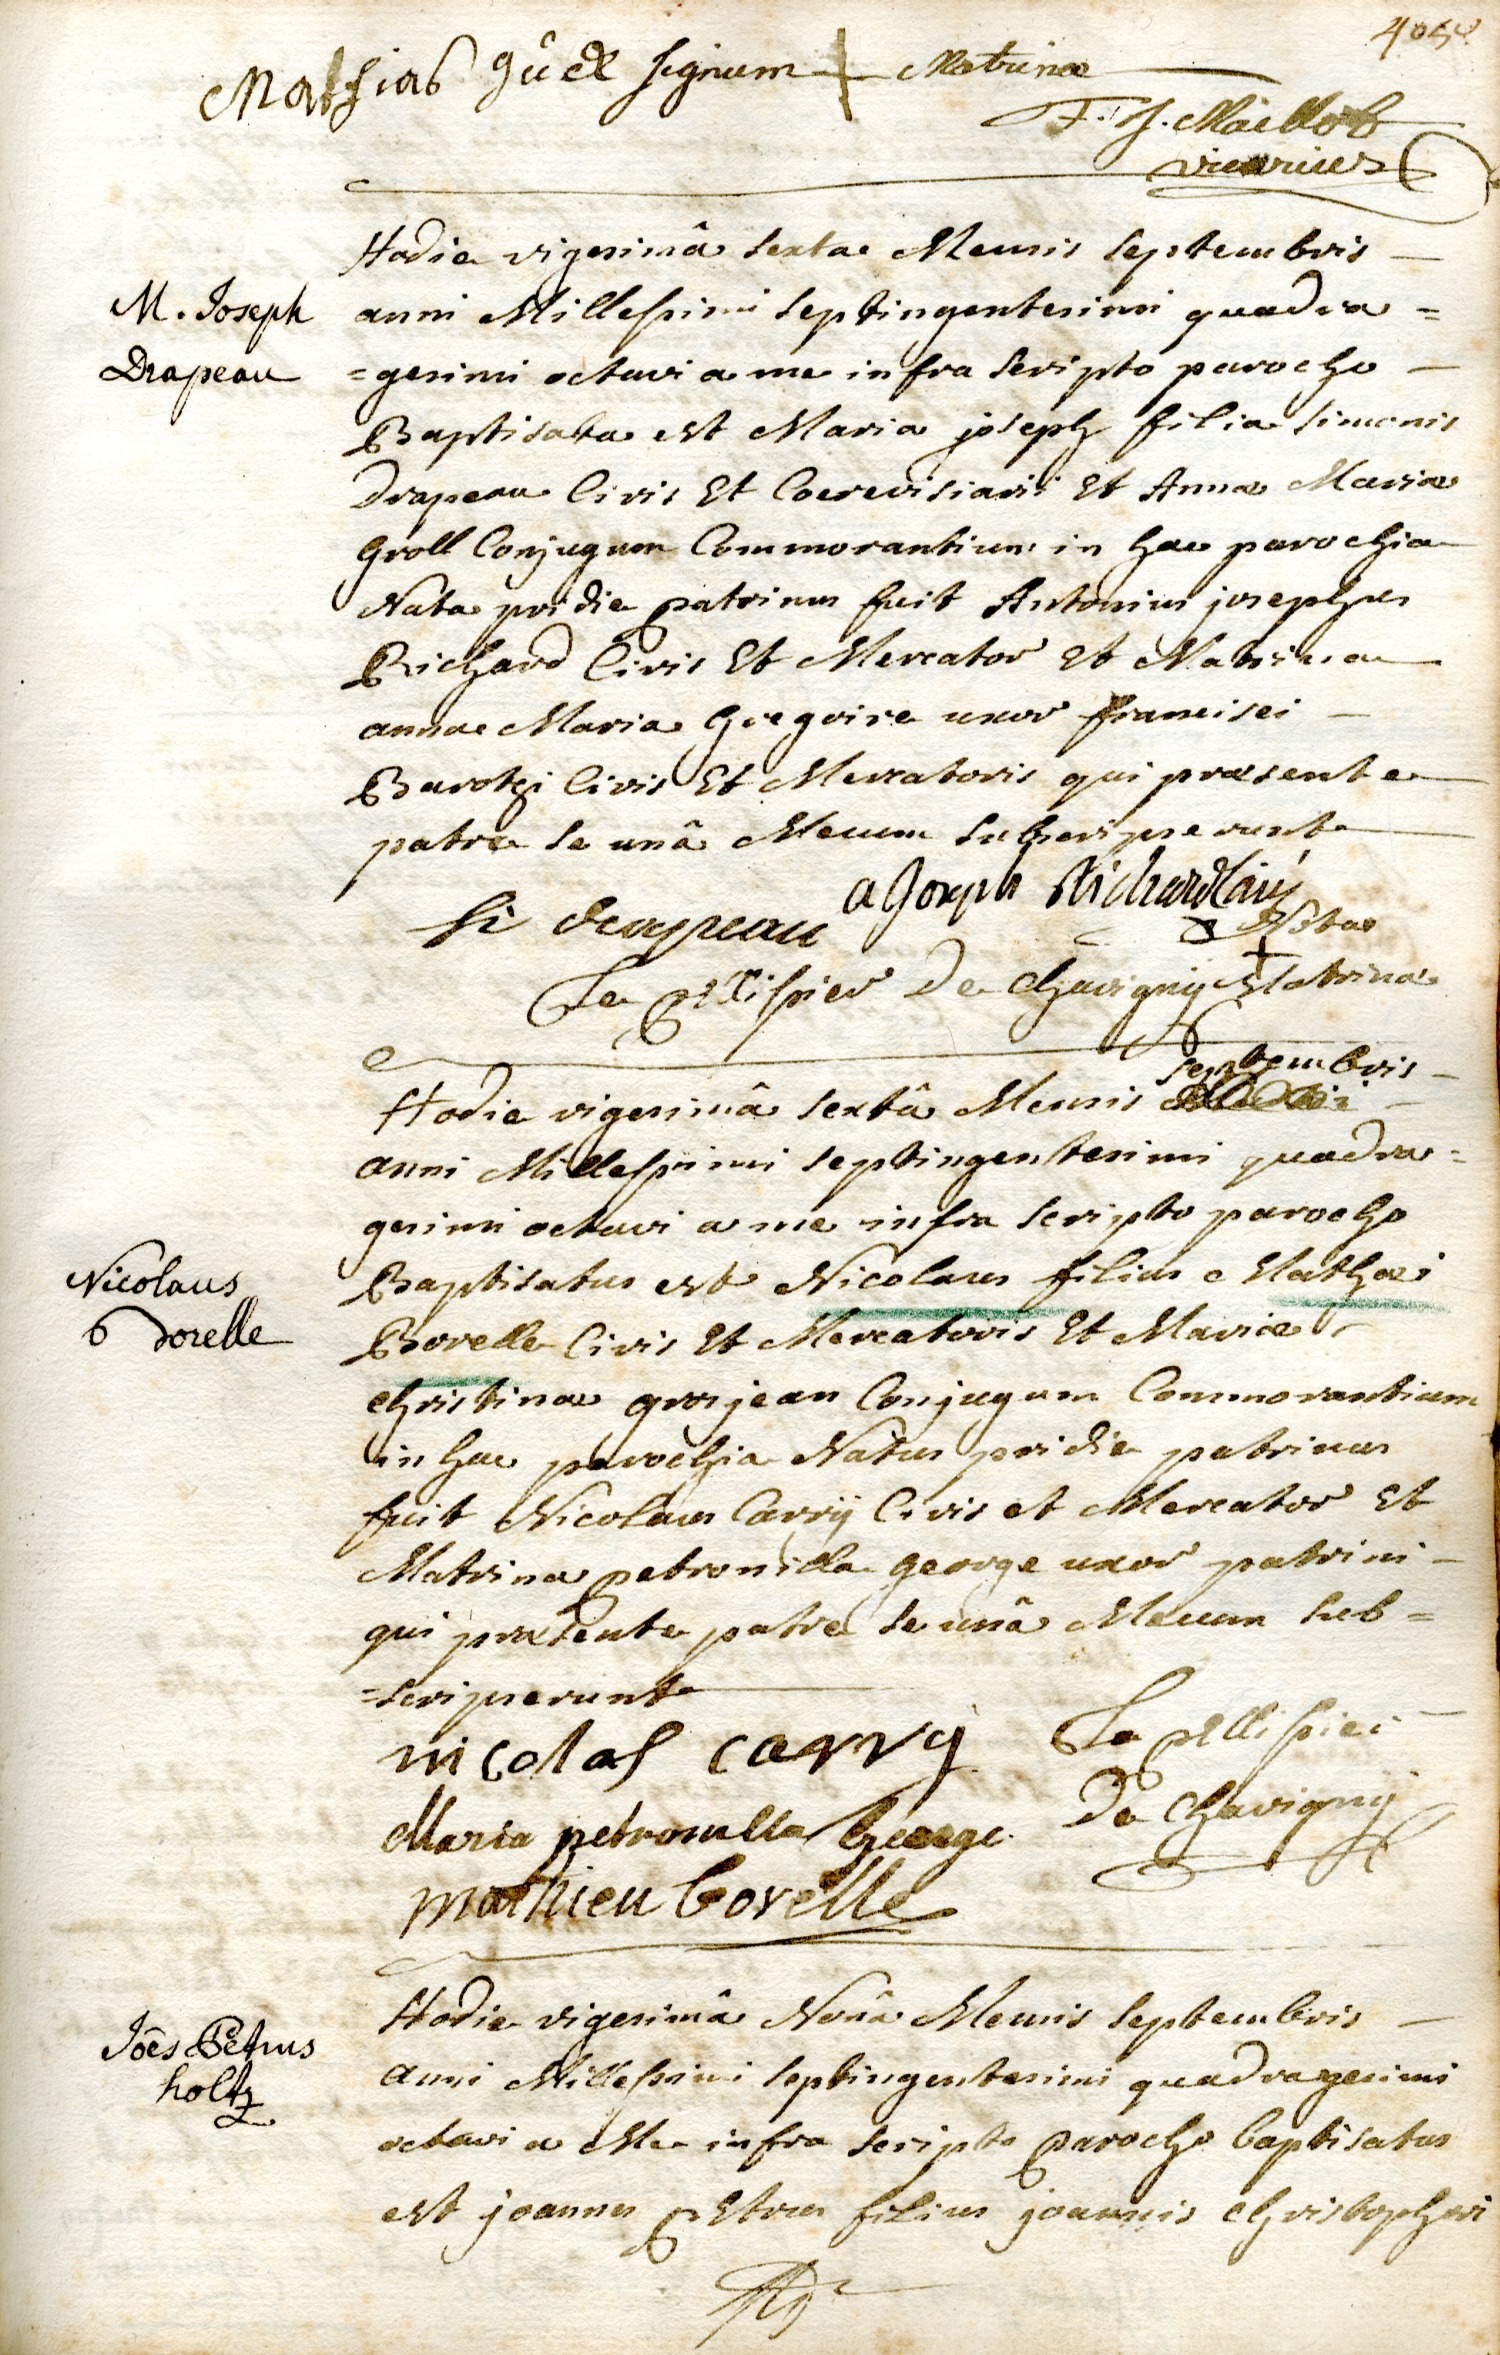 Mathias gûel signum + Matrinae
vicarius
Hodie vigesimâ sexta Mensis septembris
M. Joseph
Drapeau
anni Millesimi septingentesimi quadra =
= gesimi octavi a me infra scripto parocho
Baptisata est Maria joseph filia simonis
Drapeau Civis Et Coerevisiarii Et Anna Maria
Groll Conjugum Commorantium in hac parochia
Nata pridie patrinus fuit Antonius josephus
Richard Civis Et Mercator Et Matrina
anna Maria Gregoire uxor francisci
Barotzi Civis Et Mercatoris qui praesente
patre se unâ Mecum subscripserunt
a Joseph Richard
si drapeau
+
Le pellissier De Chavigny Matrina
septembris
Hodie vigesimâ sextâ Mensis
anni Millessimi septingentesimi quadra =
gesimi octavi a me infra scripto parocho
Nicolaus
borelle
Baptisatus est Nicolaus filius Mathaei
Borelle Civis Et Mercatoris Et Mariae
Christinae grosjean Conjugum Commorantium
in hac parochia Natus pridie patrinus
fuit Nicolaus Carrÿ Civis et Mercator Et
Matrina petronilla george uxor patrini
qui praesente patre se unâ Mecum sub =
= scripserunt
nicolas carry
Le pellissier
De Chavigny
Maria petronilla George
mathieu borelle
Hodie vigesimâ Nonâ Mensis septembris
Joês Petrus
holtz
anni Millessimi septingentesimi quadragesimi
octavi a Me infra scripto parocho baptisatus
est joannes pEtrus filius joannis Christophori